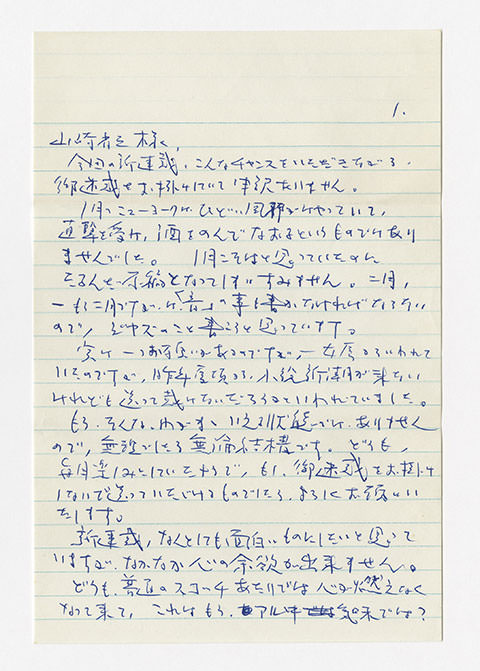 1.
山崎省三様、
今回の新連載、こんなチャンスをいただきながら、
御迷惑をお掛けしていて申訳ありません。
1月のニューヨークは、ひどい風邪がはやっていて、
直撃を受け、酒をのんでなおるというものではあり
ませんでした。 1月こそはと思っていたのに
たるんだ原稿となってしまいすみません。二月、
一も二月ですが、「音」の事を書かなければならない
ので、ジャズのこと書こうと思っています。
実は一つお願いがあるのですが、一女房にいわれて
いたのですが、昨年夏頃から、小説新潮が来ない
けれども送って戴けないだろうかといわれていました。
もう、そんなわがまゝいえる状態ではありません
ので、無理でしたら無論結構です。どうも、
毎月楽しみにしていたようで、もし、御迷惑をお掛け
しないで送っていただけるものでしたら、よろしくお願いい
たします。
新連載、なんとしても面白いものにしたいと思って
いますが、なかなか心の余裕が出来ません。
どうも、普通のスコッチあたりでは心が燃えなく
なって来て、これはもう、アル中気味では？